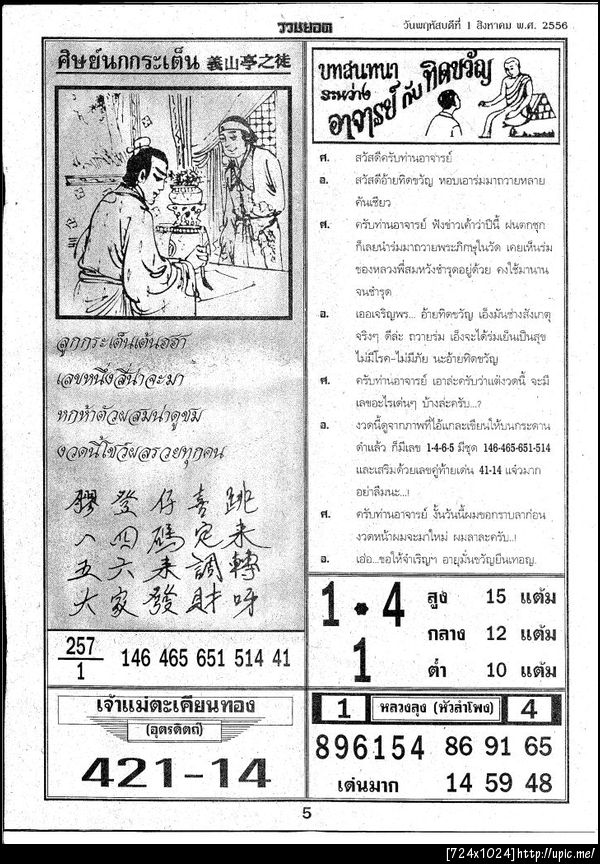 รวยยอด
วันพฤหัสบดีที่ 1 สิงหาคม พ.ศ. 2556
ศิษย์นกกระเต็น 義山亭之徒
ลูกกระเต็นเต้นฮฮา
เลขหนึ่งสี่น่าจะมา
หกห้าตัวผสมน่าดูชม
งวดนี้โชว์ผลรวยทุกคน
膠登仔喜跳
八四碼定來
五六來調轉
大家發財呀
257
1
146 465 651 514 41
เจ้าแม่ตะเคียนทอง
(อุตรดิตถ์)
421-14
บทสนทนา
ระหว่าง
อาจารย์ กับ ทิดขวัญ
ศ. สวัสดีครับท่านอาจารย์
อ. สวัสดีอ้ายทิดขวัญ หอบเอาร่มมาถวายหลาย
คันเชียว
ศ. ครับท่านอาจารย์ ฟังข่าวเค้าว่าปีนี้ ฝนตกชุก
ก็เลยนำร่มมาถวายพระภิกษุในวัด เคยเห็นร่ม
ของหลวงพี่สมหวังชำรุดอยู่ด้วย คงใช้มานาน
จนชำรุด
อ. เออเจริญพร... อ้ายทิดขวัญ เอ็งมันช่างสังเกตุ
จริงๆ ดีล่ะ ถวายร่ม เอ็งจะได้ร่มเย็นเป็นสุข
ไม่มีโรค-ไม่มีภัย นะอ้ายทิดขวัญ
ศ. ครับท่านอาจารย์ เอาล่ะครับว่าแต่งวดนี้ จะมี
เลขอะไรเด่นๆ บ้างล่ะครับ...?
อ. งวดนี้ดูจากภาพที่ไอ้แกละเขียนให้บนกระดาน
ดำแล้ว ก็มีเลข 1-4-6-5 มีชุด 146-465-651-514
และเสริมด้วยเลขคู่ท้ายเด่น 41-14 แจ๋วมาก
อย่าลืมนะ...!
ศ. ครับท่านอาจารย์ งั้นวันนี้ผมขอกราบลาก่อน
งวดหน้าผมจะมาใหม่ ผมลาละครับ..!
อ. เอ่อ...ขอให้จำเริญๆ อายุมั่นขวัญยืนเทอญ.
1 • 4
1
สูง 15 แต้ม
กลาง 12 แต้ม
ต่ำ 10 แต้ม
1 หลวงลุง (หัวลำโพง) 4
896154 86 91 65
เด่นมาก 14 59 48
5
[724x1024]http://upic.me/